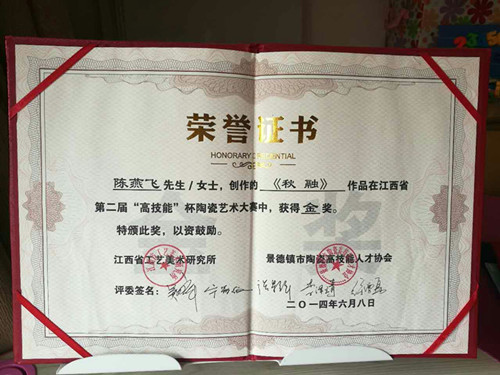 荣誉证书
HONORARY CREDENTIAL
陈燕飞先生/女士，创作的《秋融》作品在江西省
第二届“高技能”杯陶瓷艺术大赛中，获得金奖。
特颁此奖，以资鼓励。
江西省工艺美术研究所 景德镇市陶瓷高技能人才协会
评委签名：
二〇一四年六月八日